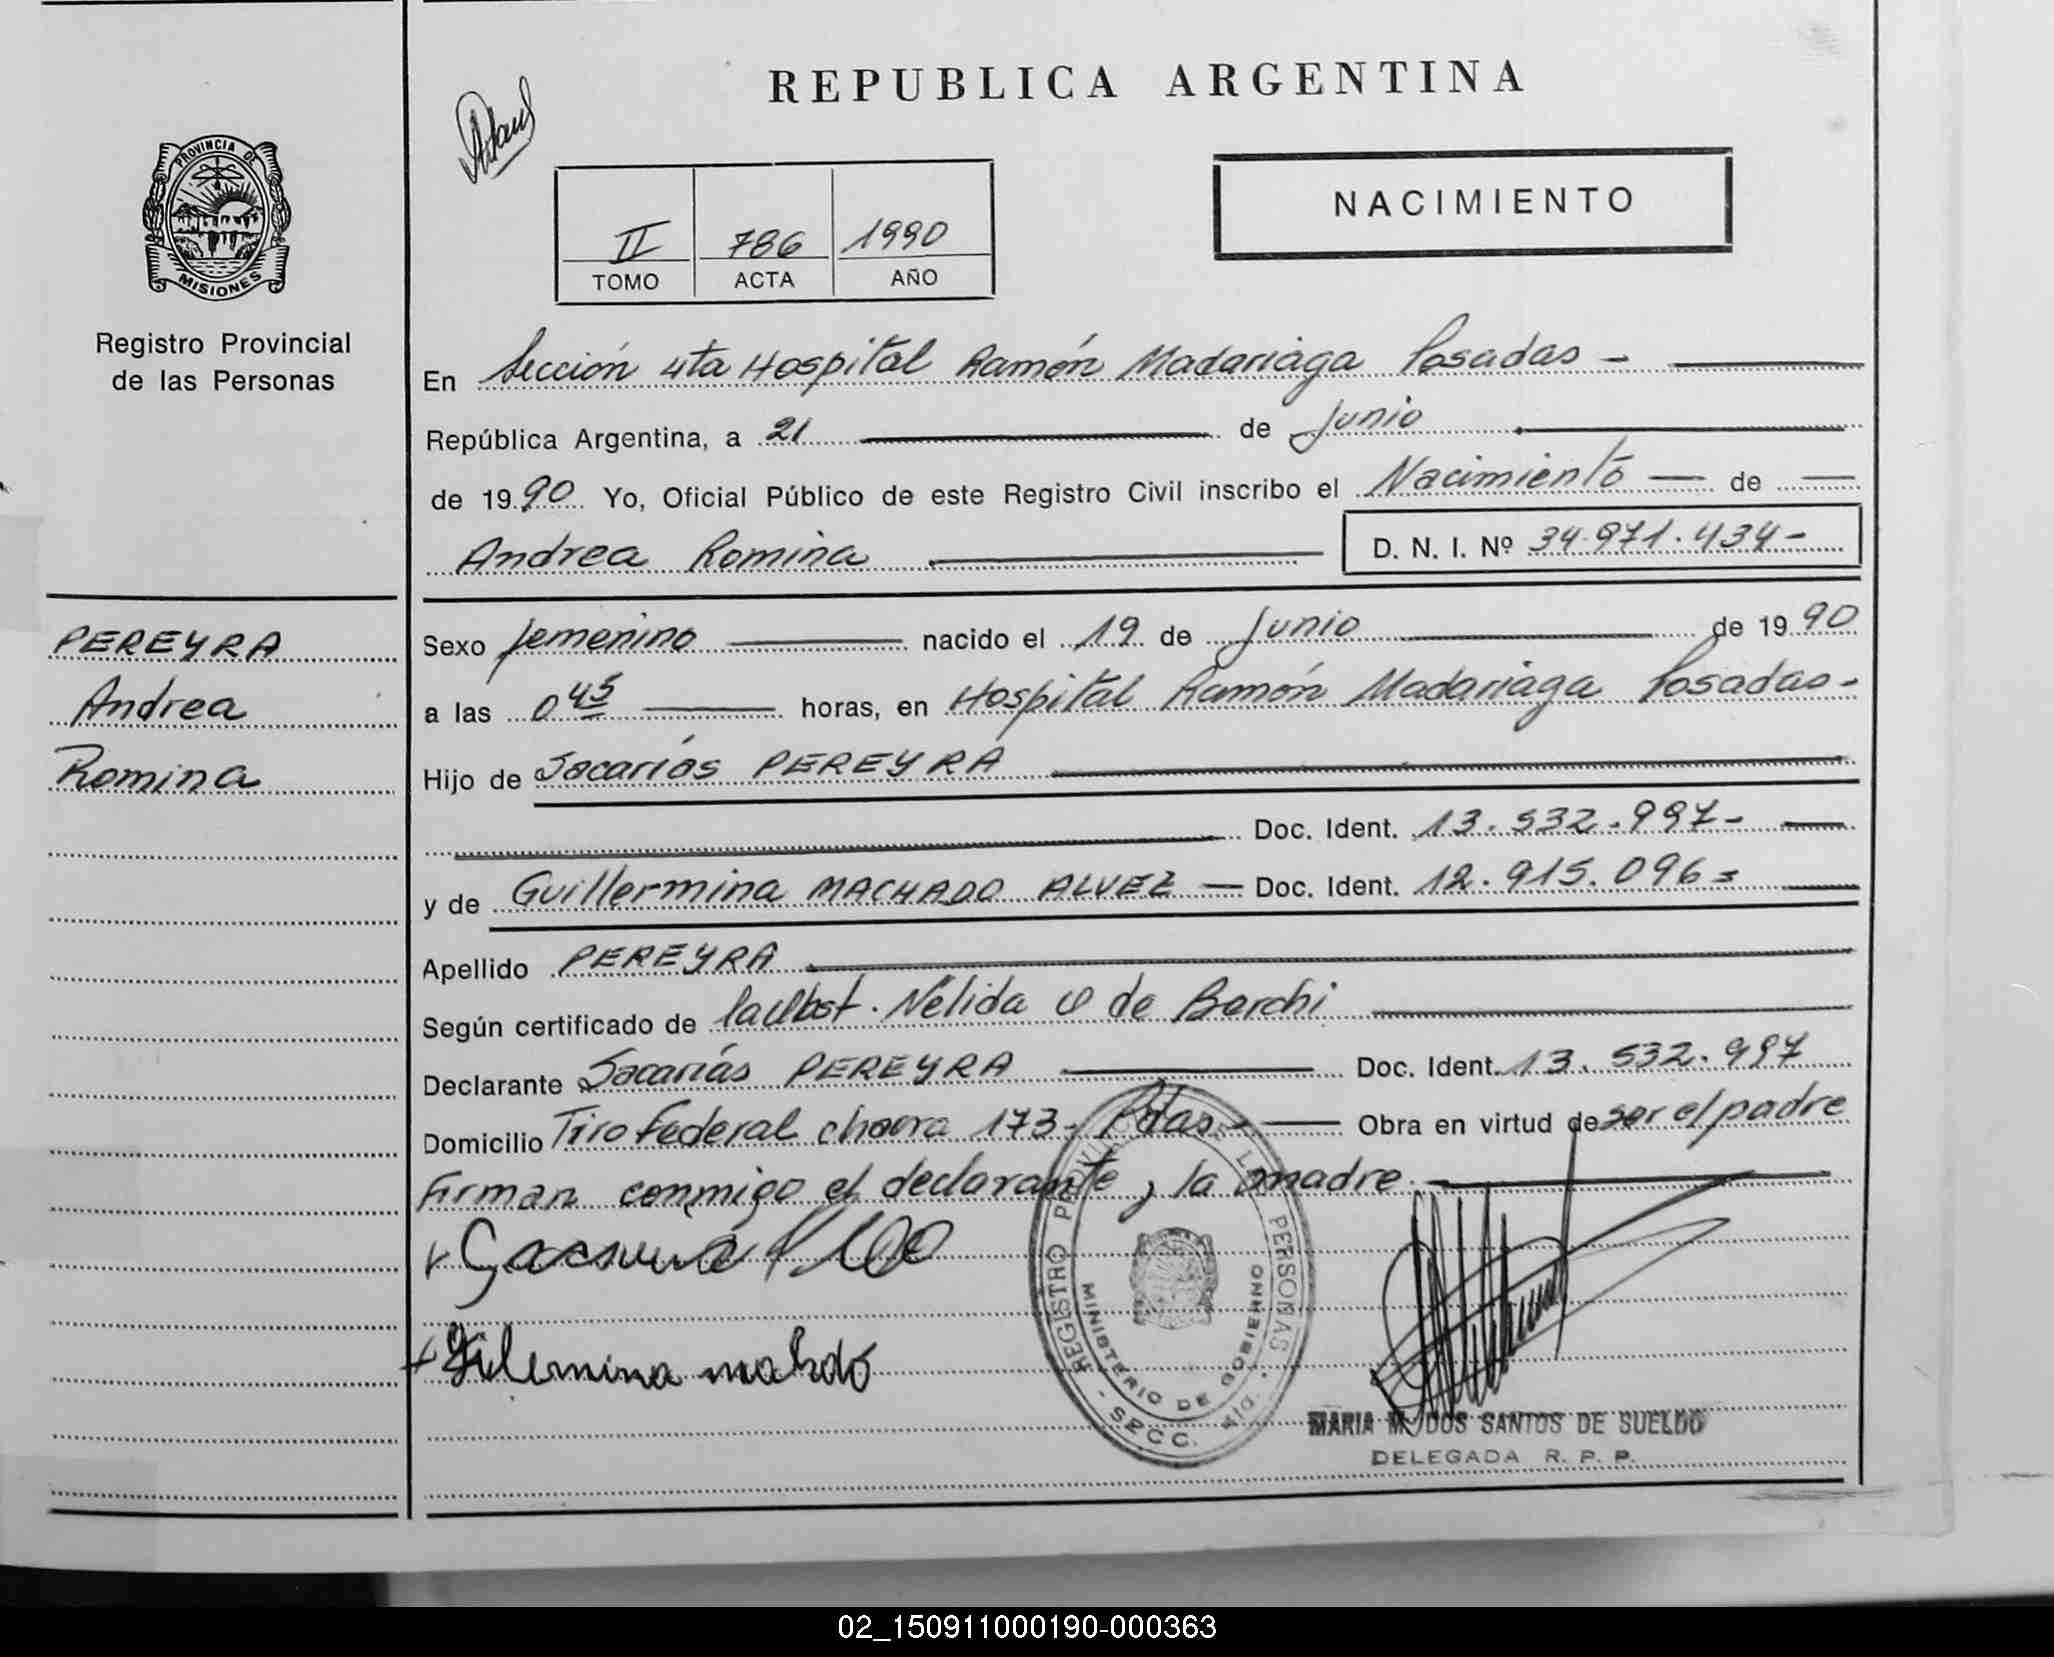 REPUBLICA ARGENTINA
PROVINCIA DE
MISIONES
Registro Provincial
de las Personas
NACIMIENTO
II 786 1990
TOMO ACTA AÑO
En Sección 4ta Hospital Ramón Madariaga Posadas -
República Argentina, a 21 de Junio
de 1990 Yo, Oficial Público de este Registro Civil inscribo el Nacimiento de
Andrea Romina D. N. I. Nº 34.971.434-
PEREYRA
Andrea
Romina
Sexo femenino nacido el 19 de Junio de 1990
a las 0 45 horas, en Hospital Ramón Madariaga Posadas-
Hijo de Sacarías PEREYRA
Doc. Ident. 13.532.997-
y de Guillermina MACHADO ALVEZ Doc. Ident. 12.915.096=
Apellido PEREYRA
Según certificado de la Obst. Nélida de Barchi
Declarante Sacarías PEREYRA Doc. Ident. 13.532.997
Domicilio Tiro Federal chacra 173- Pdas- Obra en virtud de ser el padre
Firman conmigo el declarante, la madre
Gilermina mahdo
REGISTRO PROVINCIAL DE LAS PERSONAS
MINISTERIO DE GOBIERNO
- SECC. 4ta -
MARIA M. DOS SANTOS DE SUELDO
DELEGADA R. P. P.
02_150911000190-000363